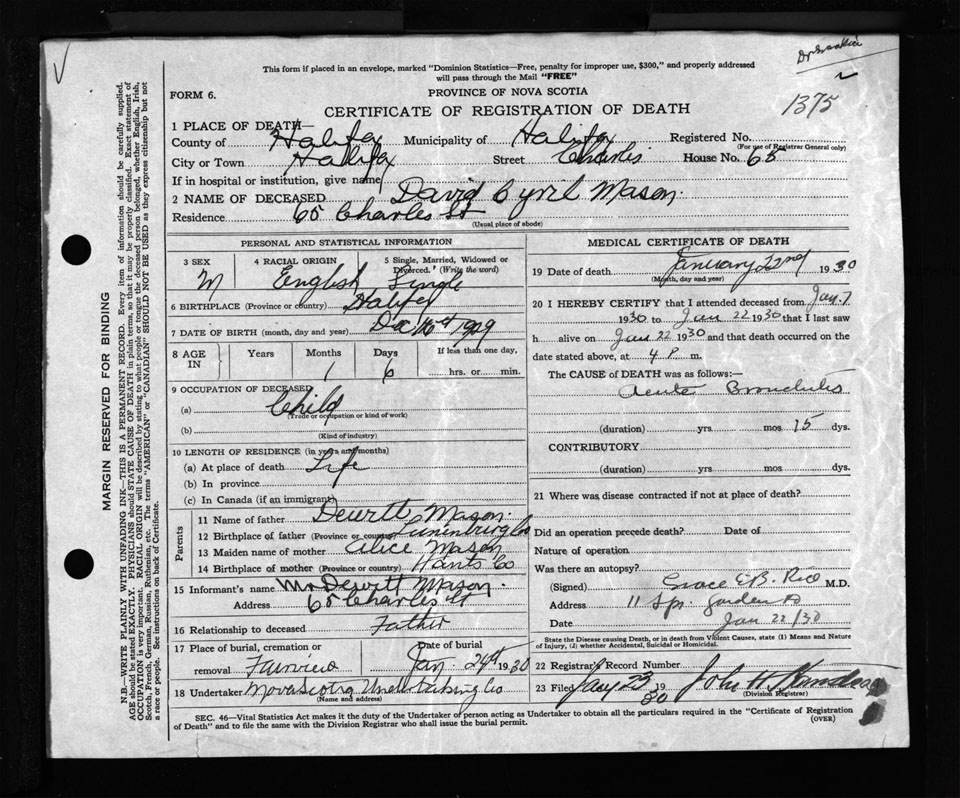 This form if placed in an envelope, marked "Dominion Statistics—Free, penalty for improper use, $300," and properly addressed
will pass through the Mail "FREE"
FORM 6.
PROVINCE OF NOVA SCOTIA
1375
CERTIFICATE OF REGISTRATION OF DEATH
1 PLACE OF DEATH—
County of Halifax Municipality of Halifax Registered No.
(For use of Registrar General only)
City or Town Halifax Street Charles House No. 65
If in hospital or institution, give name
2 NAME OF DECEASED David Cyril Mason.
Residence 65 Charles St
(Usual place of abode)
PERSONAL AND STATISTICAL INFORMATION
3 SEX M
4 RACIAL ORIGIN English
5 Single, Married, Widowed or Divorced. (Write the word) Single
6 BIRTHPLACE (Province or country) Halifax
7 DATE OF BIRTH (month, day and year) Dec 16th 1929
8 AGE IN Years Months 1 Days 6 If less than one day, hrs. or min.
9 OCCUPATION OF DECEASED
(a) Child
(Trade or occupation or kind of work)
(b)
(Kind of industry)
10 LENGTH OF RESIDENCE (in years and months)
(a) At place of death Life
(b) In province
(c) In Canada (if an immigrant)
Parents
11 Name of father Dewitt Mason.
12 Birthplace of father (Province or country) Lunenburg Co
13 Maiden name of mother Alice Mason
14 Birthplace of mother (Province or country) Hants Co
15 Informant's name Mr Dewitt Mason.
Address 65 Charles St
16 Relationship to deceased Father
17 Place of burial, cremation or removal Fairview
Date of burial Jan. 24th 1930
18 Undertaker Nova Scotia Undertaking Co
(Name and address)
MEDICAL CERTIFICATE OF DEATH
19 Date of death January 22nd 1930
(Month, day and year)
20 I HEREBY CERTIFY that I attended deceased from Jan. 7
1930 to Jan 22 1930 that I last saw
h alive on Jan 22 1930 and that death occurred on the
date stated above, at 4 P. m.
The CAUSE of DEATH was as follows:—
Acute Bronchitis
(duration) yrs mos 15 dys.
CONTRIBUTORY
(duration) yrs. mos. dys.
21 Where was disease contracted if not at place of death?
Did an operation precede death? Date of
Nature of operation
Was there an autopsy?
(Signed) Grace E.B. Rice M.D.
Address 11 Spr. Garden Rd
Date Jan 22/30
State the Disease causing Death, or in death from Violent Causes, state (1) Means and Nature
of Injury, (2) whether Accidental, Suicidal or Homicidal.
22 Registrar's Record Number
23 Filed Jany 23 1930 John H
(Division Registrar)
SEC. 46—Vital Statistics Act makes it the duty of the Undertaker of person acting as Undertaker to obtain all the particulars required in the "Certificate of Registration
of Death" and to file the same with the Division Registrar who shall issue the burial permit.
(OVER)
MARGIN RESERVED FOR BINDING
N.B.—WRITE PLAINLY WITH UNFADING INK—THIS IS A PERMANENT RECORD. Every item of information should be carefully supplied.
AGE should be stated EXACTLY. PHYSICIANS should STATE CAUSE OF DEATH in plain terms, so that it may be properly classified. Exact statement of
OCCUPATION is very important. RACIAL ORIGIN will be described by stating to what people or tongue the deceased person belonged, whether English, Irish,
Scotch, French, German, Russian, Ruthenian, etc. The terms "AMERICAN" or "CANADIAN" SHOULD NOT BE USED as they express citizenship but not
a race or people. See instructions on back of Certificate.